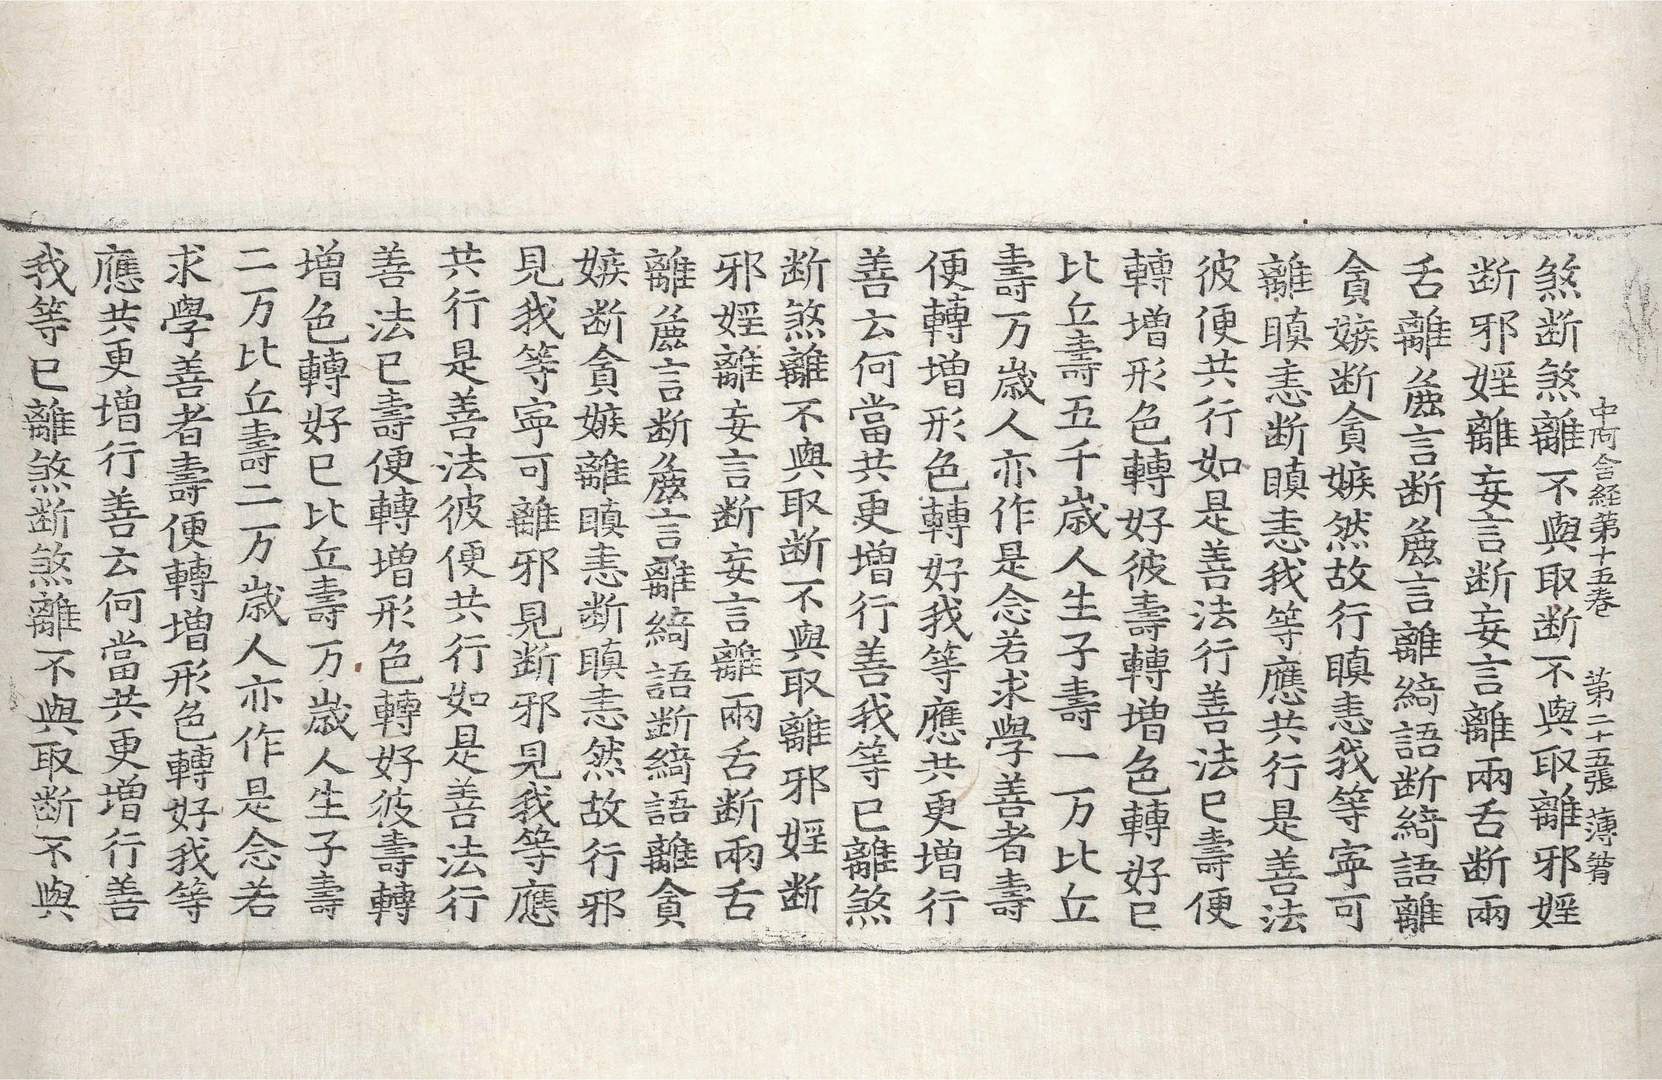 中阿含経第十五巻 第二十五張 薄
煞断煞離不與取断不與取離邪婬
断邪婬離妄言断妄言離兩舌断兩
舌離麁言断麁言離綺語断綺語離
貪嫉断貪嫉然故行瞋恚我等寧可
離瞋恚断瞋恚我等應共行是善法
彼便共行如是善法行善法已壽便
轉增形色轉好彼壽轉增色轉好已
比丘壽五千歲人生子壽一万比丘
壽万歲人亦作是念若求學善者壽
便轉增形色轉好我等應共更增行
善云何當共更增行善我等已離煞
断煞離不與取断不與取離邪婬断
邪婬離妄言断妄言離兩舌断兩舌
離麁言断麁言離綺語断綺語離貪
嫉断貪嫉離瞋恚断瞋恚然故行邪
見我等寧可離邪見断邪見我等應
共行是善法彼便共行如是善法行
善法已壽便轉增形色轉好彼壽轉
增色轉好已比丘壽万歲人生子壽
二万比丘壽二万歲人亦作是念若
求學善者壽便轉增形色轉好我等
應共更增行善云何當共更增行善
我等已離煞断煞離不與取断不與